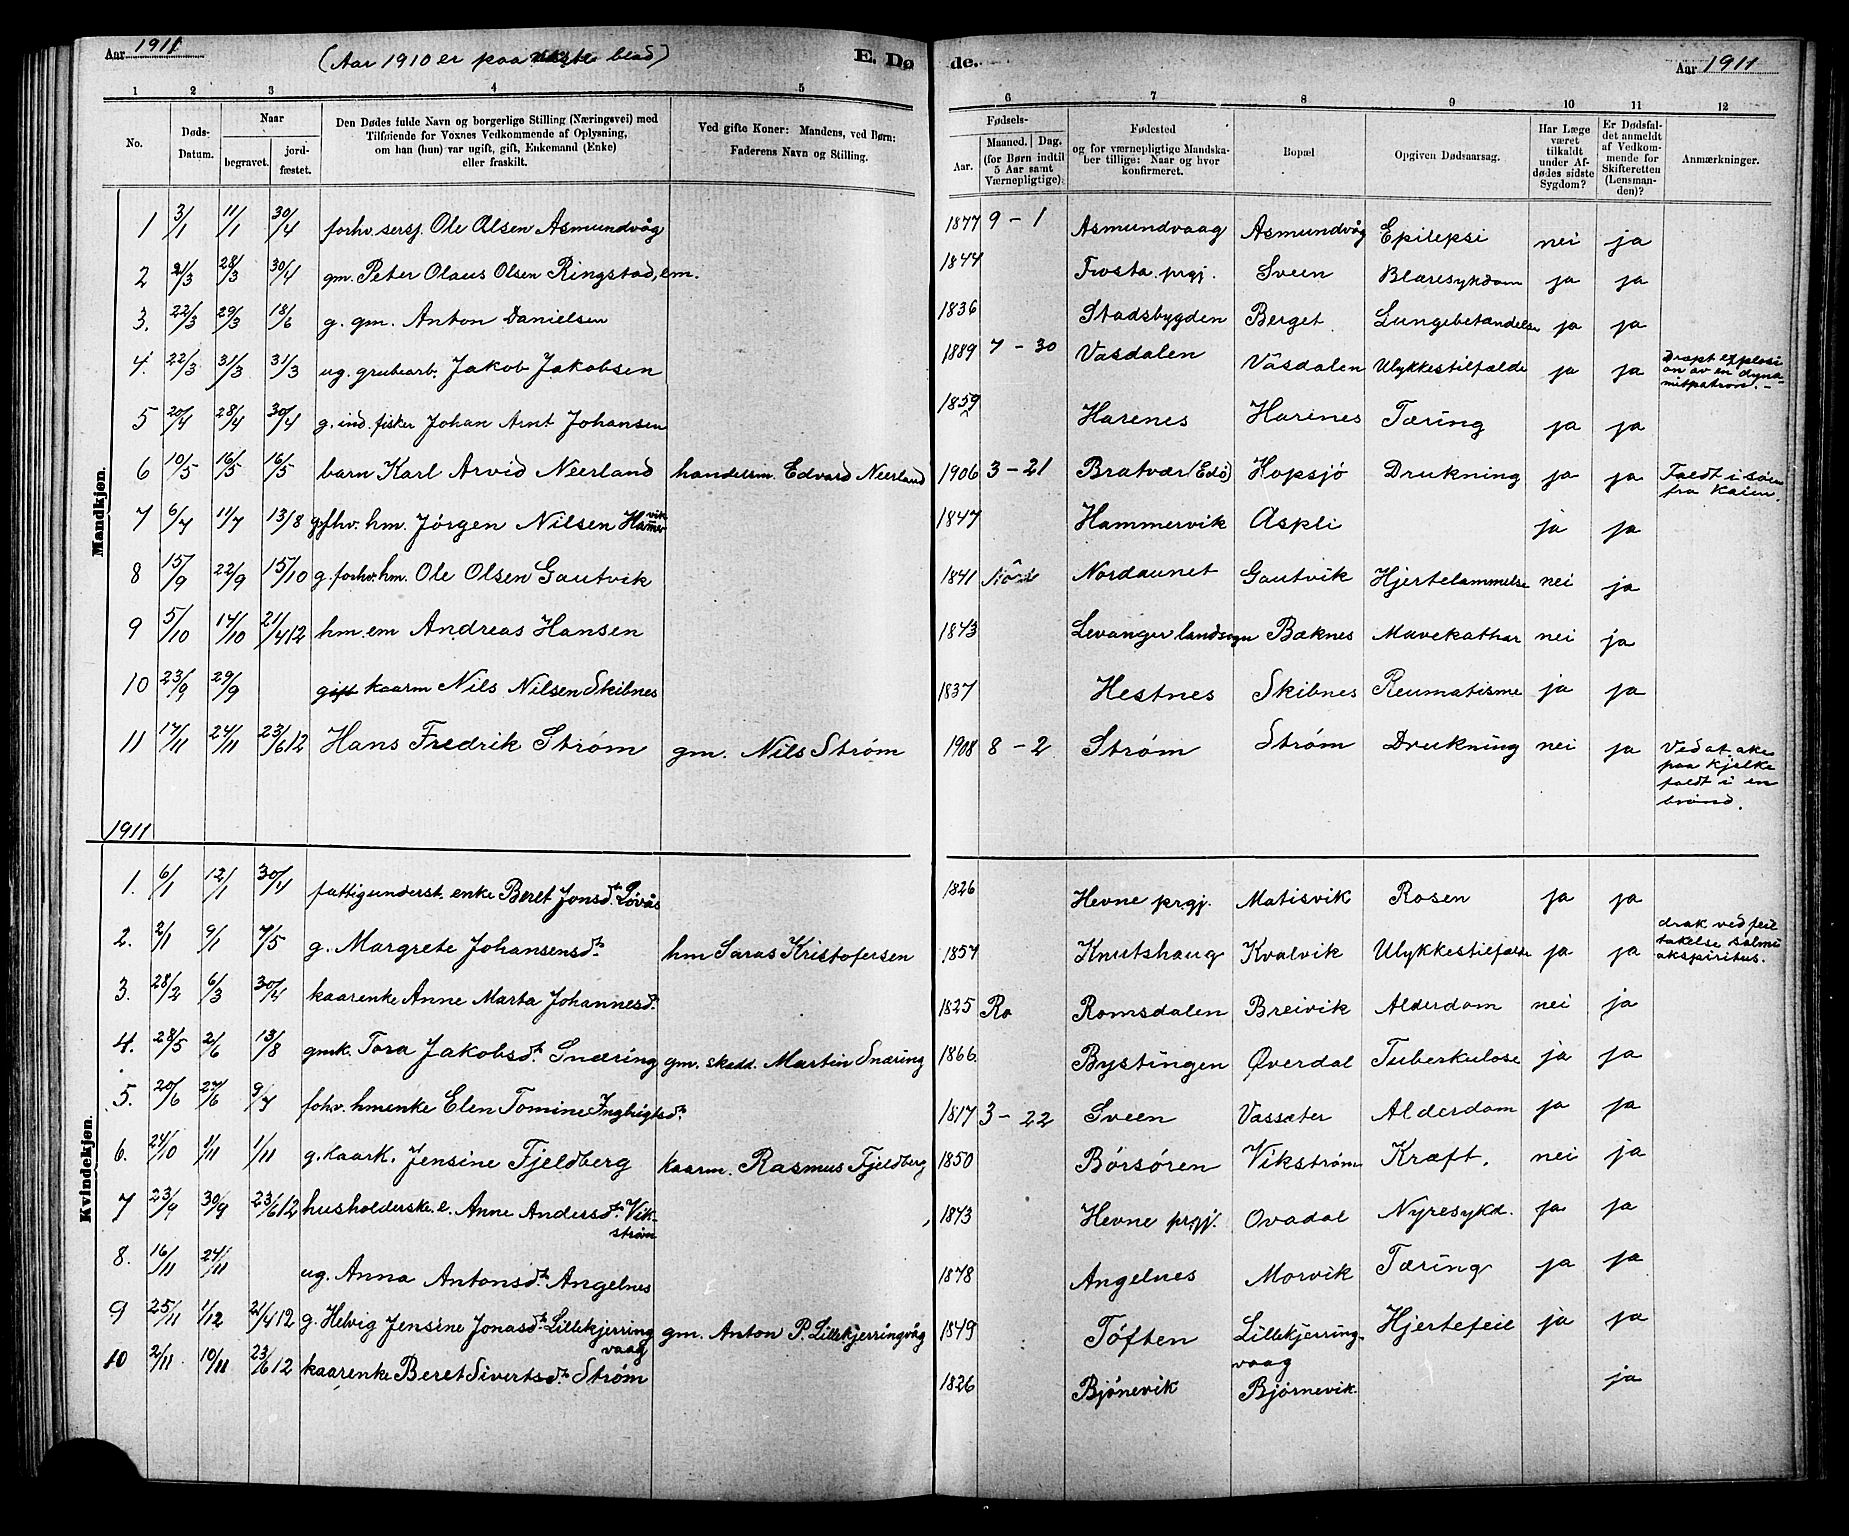 Aar 1911
(Aar 1910 er paa næste blad)
E. Dø de.
Aar 1911
1 2 3 4 5 6 7 8 9 10 11 12
No.
Døds-Datum.
Naar
begravet.
jord-fæstet.
Den Dødes fulde Navn og borgerlige Stilling (Næringsvei) med
Tilføiende for Voxnes Vedkommende af Oplysning,
om han (hun) var ugift, gift, Enkemand (Enke)
eller fraskilt.
Ved gifte Koner: Mandens, ved Børn:
Faderens Navn og Stilling.
Fødsels-
Aar.
Maaned. Dag.
(for Børn indtil
5 Aar samt
Værnepligtige).
Fødested
og for værnepligtige Mandska-
ber tillige: Naar og hvor
konfirmeret.
Bopæl
Opgiven Dødsaarsag.
Har Læge
været
tilkaldt
under Af-
dødes sidste
Sygdom?
Er Dødsfal-
det anmeldt
af Vedkom-
mende for
Skifteretten
(Lensman-
den)?
Anmærkninger.
Mandkjøn.
1 3/1 11/1 30/4 forhv. sersj. Ole Olsen Asmundvåg 1877 9 - 1 Asmundvaag Asmundvåg Epilepsi nei ja
2 21/3 28/3 30/4 gm. Peter Olaus Olsen Ringstad, em. 1844 Frosta prgj. Sveen Blæresykdom ja ja
3. 22/3 29/3 18/6 g. gm. Anton Danielsen 1836 Stadsbygden Berget Lungebetændelse ja ja
4. 22/3 31/3 31/3 ug. grubearb. Jakob Jakobsen 1889 7 - 30 Vasdalen Vasdalen Ulykkestilfælde ja ja Dræpt explosi-
on av en dyna-
mitpatron. -
5 20/4 28/4 30/4 g. ind. fisker Johan Arnt Johansen 1859 Harenes Harenes Tæring ja ja
6 10/5 16/5 16/5 barn Karl Arvid Neerland handelsm. Edvard Neerland 1906 3 - 21 Bratvær (Edø) Hopsjö Drukning ja ja Faldt i søien
fra kaien.
7 6/7 11/7 13/8 g. fhv. hm. Jörgen Nilsen Hammervik 1847 Hammervik Aspli ja ja
8 15/9 22/9 15/10 g. forhv. hm. Ole Olsen Gautvik 1841 Nordaunet Gautvik Hjertelammelse nei ja
9 5/10 14/10 21/4 12 hm. em Andreas Hansen 1843 Levanger landsogn Bæknes Mavekathar nei ja
10 23/9 29/9 gift kaarm Nils Nilsen Skibnes 1837 Hestnes Skibnes Reumatisme ja ja
11 17/11 24/11 23/6 12 Hans Fredrik Strøm gm. Nils Strøm 1908 8 - 2 Strøm Strøm Drukning nei ja Ved at ake
paa kjelke
faldt i en
brønd.
1911
Kvindekjøn.
1. 6/1 12/1 30/4 fattigunderst. enke Beret Jonsd. Løvås 1826 Hevne prgj. Matisvik Rosen ja ja
2. 2/1 9/1 7/5 g. Margrete Johansensd. hm Saras Kristofersen 1857 Knutshaug Kvalvik Ulykkestilfælde ja ja drak ved feil-
takelse salmi-
akspiritus.
3. 28/2 6/3 30/4 kaarenke Anne Marta Johannesd. 1825 Ro Romsdalen Breivik Alderdom nei ja
4. 28/5 2/6 13/8 gmk. Tora Jakobsd. Snæring gm. skadd. Martin Snæring 1866 Bystingen Øverdal Tuberkulose ja ja
5. 20/6 27/6 9/7 fohv. hmenke Elen Tomine Ingbrigtsd. 1817 3 - 22 Sveen Vassæter Alderdom ja ja
6. 24/10 1/11 1/11 g. kaark. Jensine Fjeldberg kaarm. Rasmus Fjeldberg 1850 Börsören Vikstrøm Kræft. nei ja
7 23/9 30/9 23/6 12 husholderske. e. Anne Andersd. Vik-
strøm 1843 Hevne prgj. Ovadal Nyresykd. ja ja
8. 16/11 24/11 ug. Anna Antonsd. Angelnes 1878 Angelnes Morvik Tæring ja ja
9 25/11 1/12 21/4 12 g. Helvig Jensine Jonasd. Lillekjerring
vaag gm. Anton P. Lillekjerringvåg 1849 Töften Lillekjerring-
vaag Hjertefeil ja ja
10 2/11 10/11 23/6 12 kaarenke Beret Sivertsd. Strøm 1826 Bjönevik Bjørnevik ja